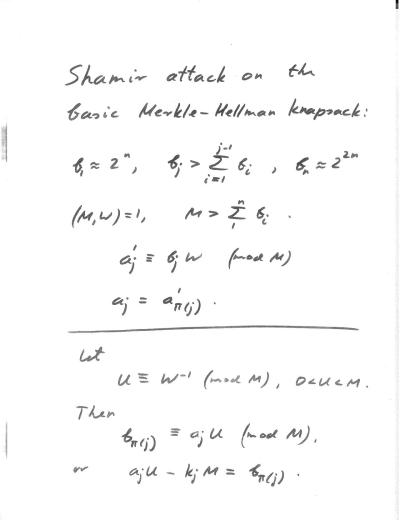 Shamir attack on the
basic Merkle-Hellman knapsack:
b₁ ≈ 2ⁿ, b_j > Σ_{i=1}^{j-1} b_i , b_n ≈ 2^{2n}
(M,W)=1, M > Σ_1^n b_i .
a'_j ≡ b_j W (mod M)
a_j = a'_{π(j)} .
Let
U ≡ W⁻¹ (mod M), 0<U<M.
Then
b_{π(j)} ≡ a_j U (mod M),
or a_j U - k_j M = b_{π(j)} .